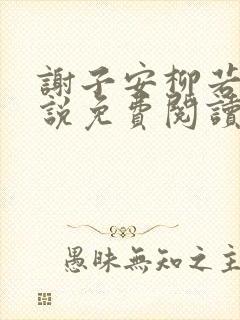 謝子安柳若
説免費閱讀
愚昧無知之主